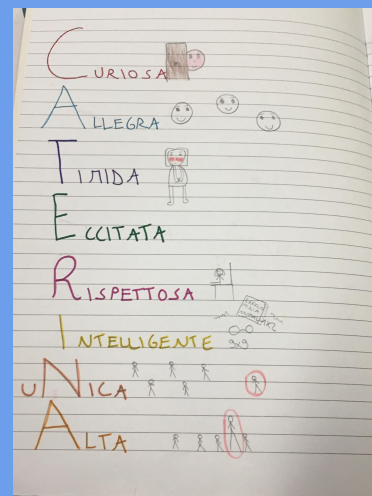 CURIOSA
ALLEGRA
TIMIDA
ECCITATA
RISPETTOSA
INTELLIGENTE
9x9
uNICA
ALTA